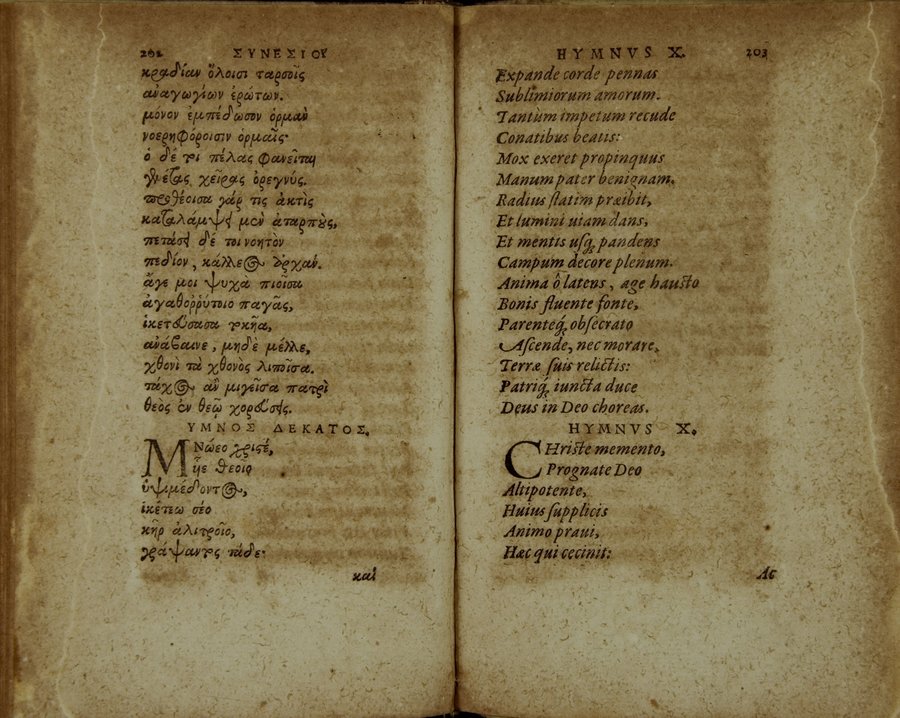 202 ΣΥΝΕΣΙΟΥ
κραδίαν ὅλοισι ταρσοῖς
ἀναγωγίων ἐρώτων.
μόνον ἐμπέδωσον ὁρμαὺ
νοερηφόροισιν ὁρμαῖς·
ὁ δέ τοι πέλας φανεῖται
γενέτας χεῖρας ὀρεγνύς.
προθέοισα γάρ τις ἀκτὶς
καταλάμψει μὲν ἀταρποὺς,
πετάσει δέ τοι νοητὸν
πεδίον, κάλλεος ἀρχάν.
ἄγε μοι ψυχὰ πιοῖσα
ἀγαθοῤῥύτοιο παγᾶς,
ἱκετεύσασα τοκῆα,
ἀνάβαινε, μηδὲ μέλλε,
χθονὶ τὰ χθονὸς λιποῖσα.
τάχος ἂν μιγεῖσα πατρὶ
θεὸς ἐν θεῷ χορεύσεις.
ΥΜΝΟΣ ΔΕΚΑΤΟΣ.
ΜΝώεο χριστέ,
ὑῖε θεοῖο
ὑψιμέδοντος,
ἱκέτεω σέο
κῆρ ἀλιτροῖο,
γράψαντος τάδε·
καὶ
HYMNVS X. 203
Expande corde pennas
Sublimiorum amorum.
Tantùm impetum recude
Conatibus beatis:
Mox exeret propinquus
Manum pater benignam.
Radius statim præibit,
Et lumini uiam dans,
Et mentis usq; pandens
Campum decore plenum.
Anima ô latens, age hausto
Bonis fluente fonte,
Parenteq́; obsecrato
Ascende, nec morare,
Terræ suis relictis:
Patriq́; iuncta duce
Deus in Deo choreas.
HYMNVS X.
CHriste memento,
Prognate Deo
Altipotente,
Huius supplicis
Animo praui,
Hæc qui cecinit:
Ac